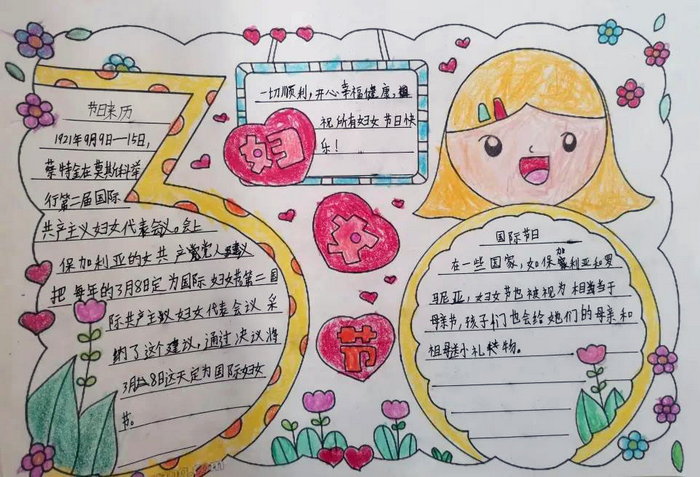 节日来历
1921年9月9日—15日,
蔡特金在莫斯科举
行第二届国际
共产主义妇女代表会议。会上
保加利亚的女共产党人建议
把每年的3月8日定为国际妇女节第二国
际共产主义妇女代表会议采
纳了这个建议,通过决议将
3月8日这天定为国际妇女
节。
一切顺利,开心幸福健康,
祝所有妇女节日快
乐!
妇
女
节
国际节日
在一些国家,如保加利亚和罗
马尼亚,妇女节也被视为相当于
母亲节,孩子们也会给她们的母亲和
祖母送小礼物。